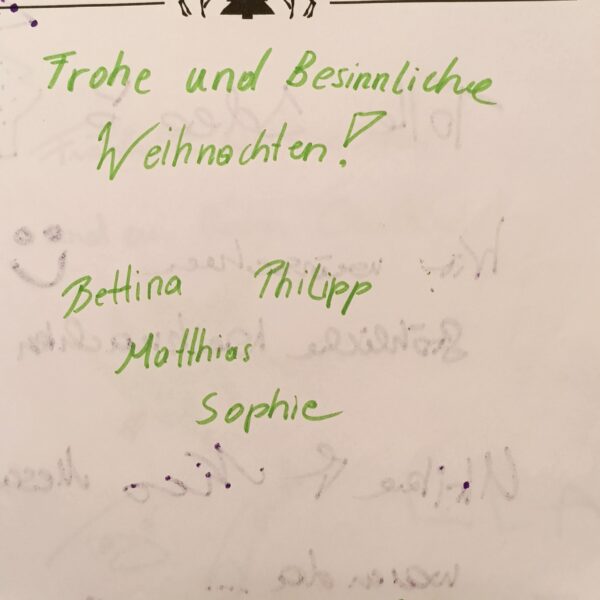 Frohe und Besinnliche
Weihnachten!
Bettina Philipp
Matthias
Sophie